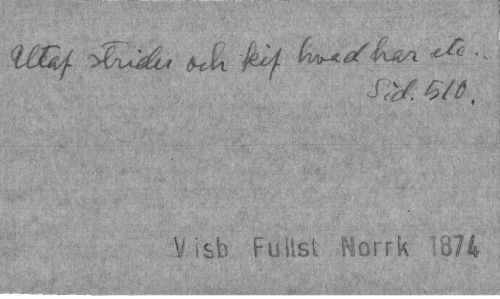 Utaf strider och kif hvad har etc..
Sid. 510.
Visb Fullst Norrk 1874